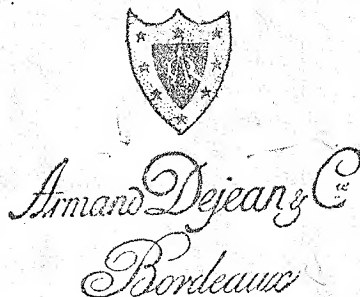 Armand Dejean & Cie
Bordeaux